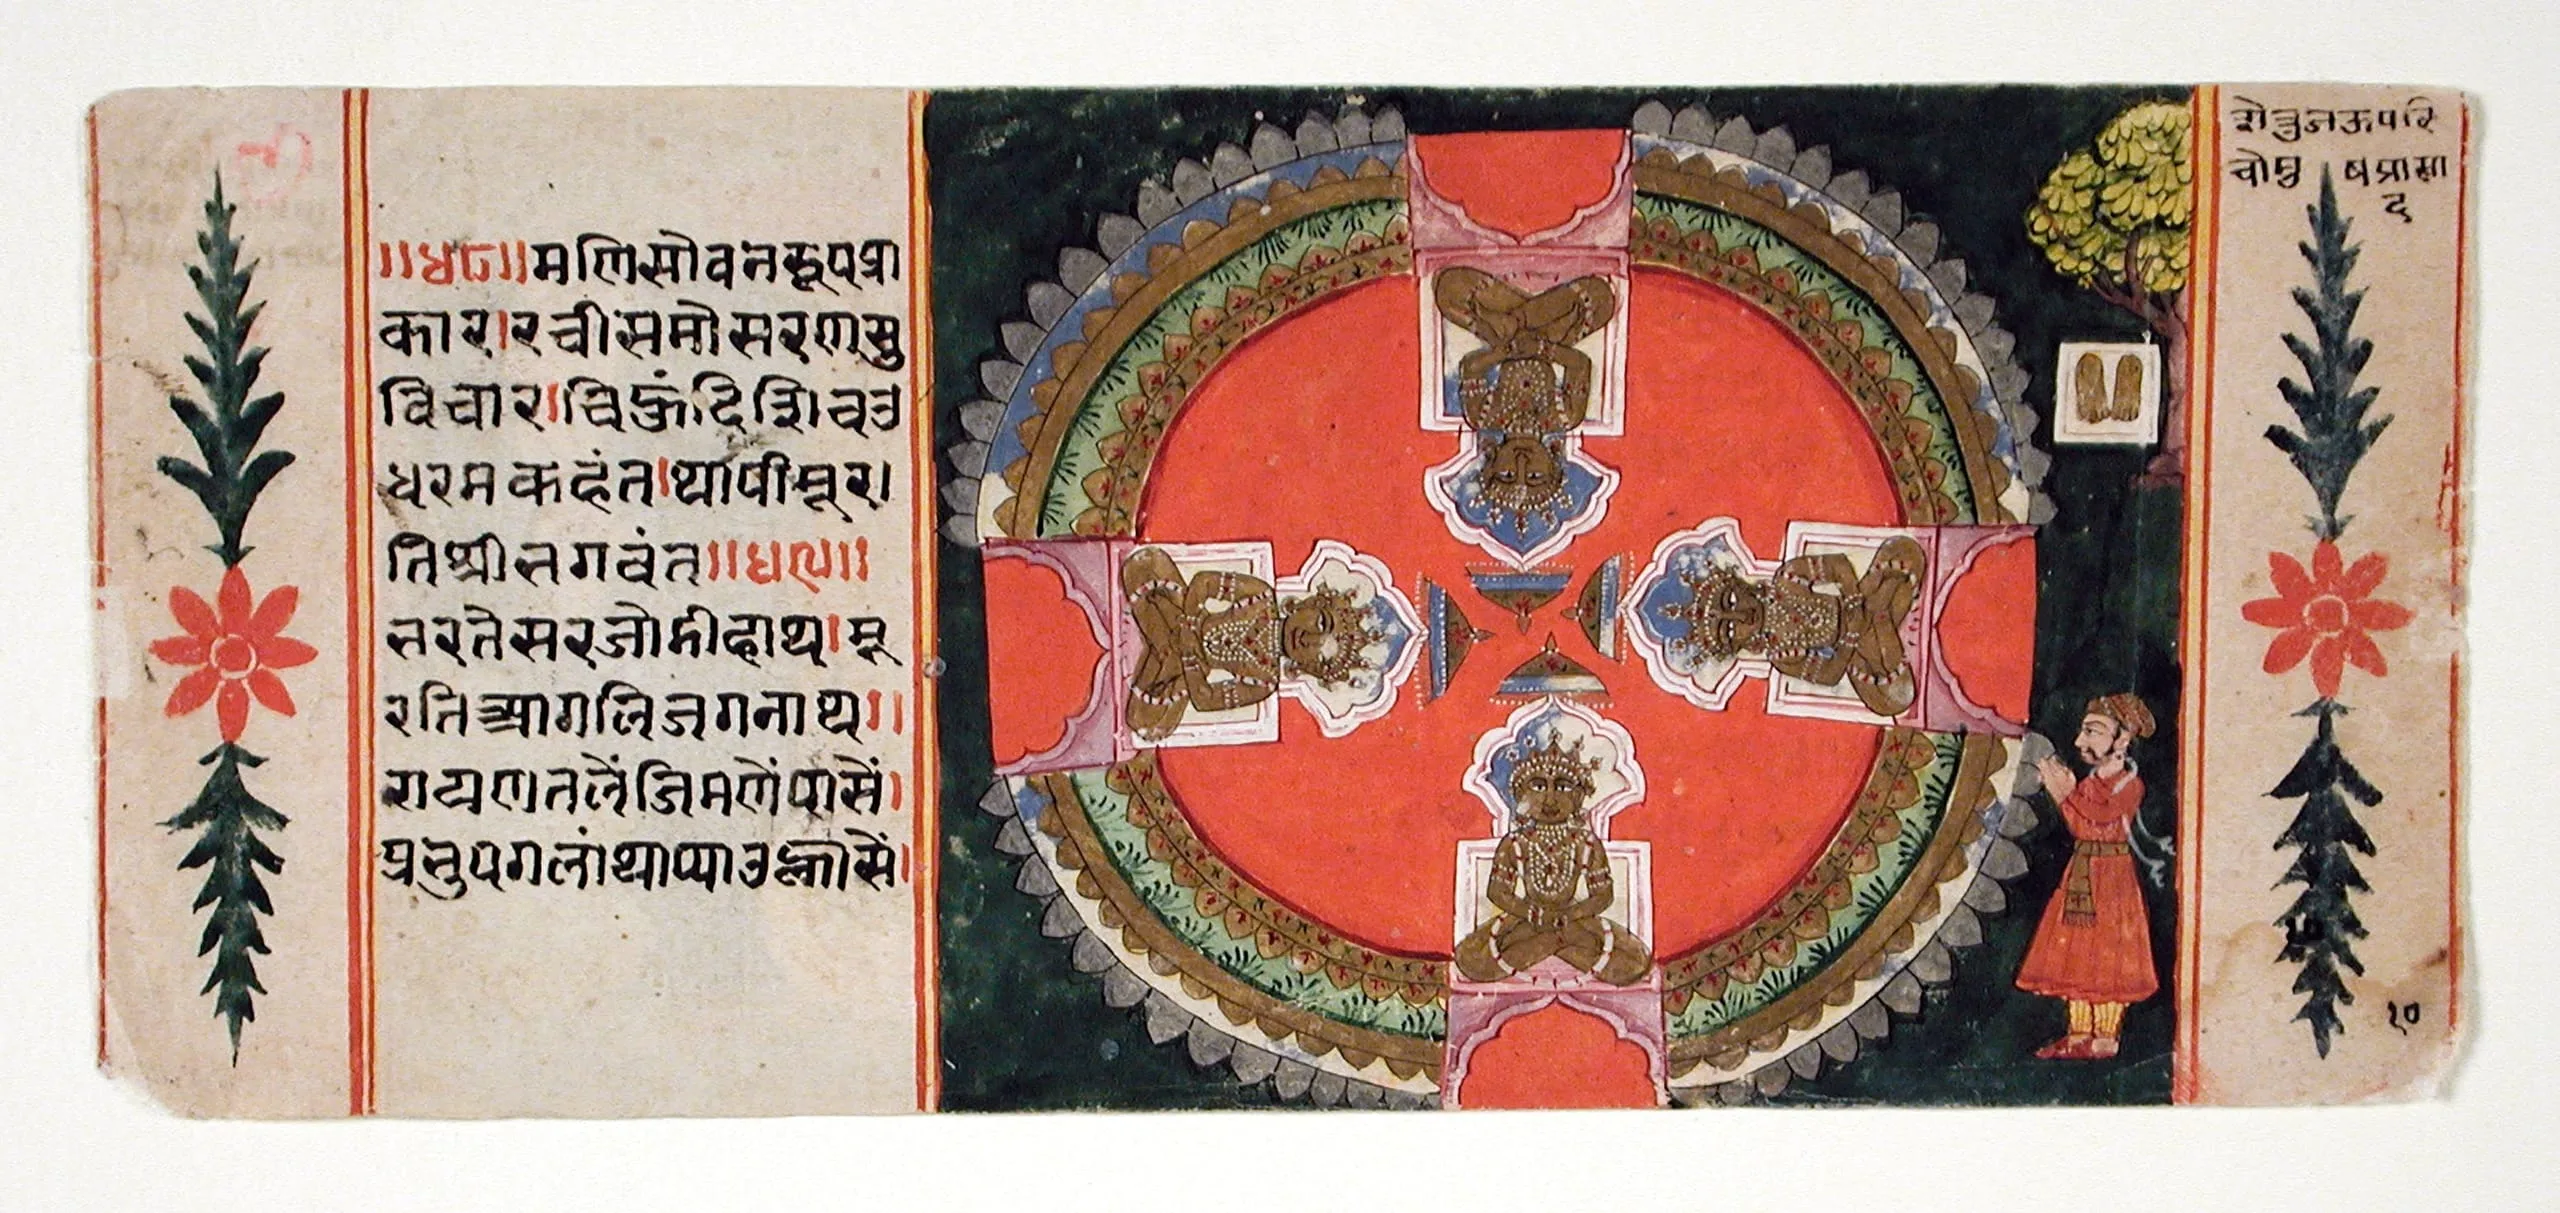 ॥४८॥मणिसोवनरूपप्रा
कार।रचीसमोसरणसु
विचार।चिहुंदिशिचत्र
धरमकहंत।थापीमूर।
तिश्रीभगवंत॥४९॥
भरतेसरजोडीहाथ।मू
रतिआगलिजगनाथ॥
रायणतलेंजिमणेंपासें।
प्रभुपगलांथाप्याउल्लासें।
शेत्रुजऊपरि
चोमुषप्रासा
द
१०